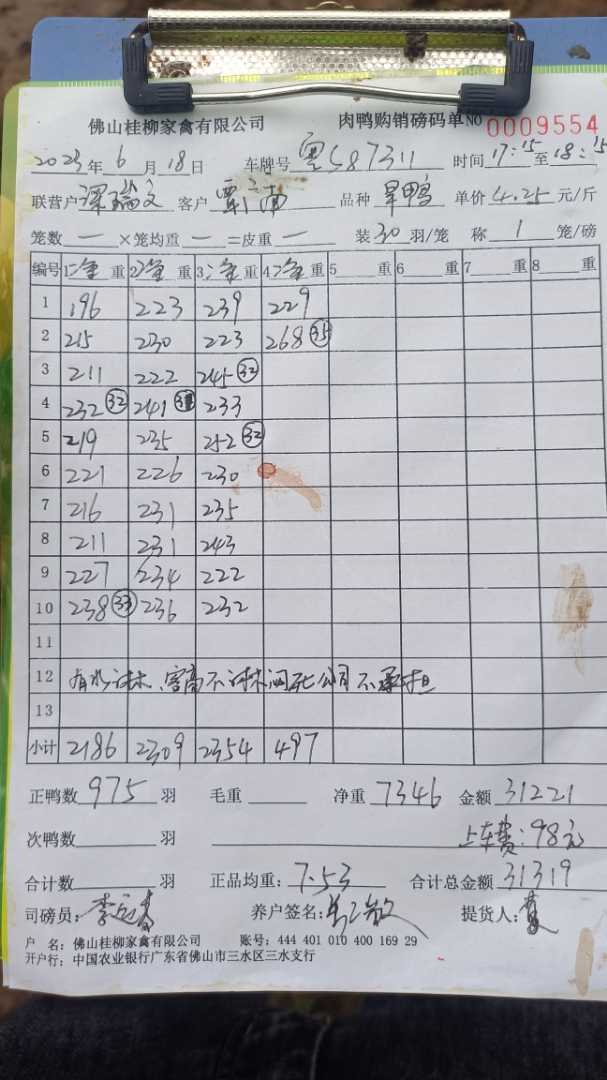 佛山桂柳家禽有限公司 肉鸭购销磅码单NO 0009554
2023年6月18日 车牌号 粤S87311 时间17:15至18:15
联营户 梁瑞文 客户 品种 旱鸭 单价 4.25 元/斤
笼数 一 ×笼均重 一 =皮重 一 装30羽/笼 称 1 笼/磅
编号 1 净重 2 净重 3 净重 4 净重 5 重 6 重 7 重 8 重
1 196 223 239 229
2 215 230 223 268 35
3 211 222 245 32
4 232 32 241 233
5 219 235 252 32
6 221 226 230
7 216 231 235
8 211 231 243
9 227 234 222
10 238 33 236 232
11
12 有水冲淋、客商不冲淋闷死公司不承担
13
小计 2186 2309 2354 497
正鸭数 975 羽 毛重 净重 7346 金额 31221
次鸭数 羽 上车费:98元
合计数 羽 正品均重: 7.53 合计总金额 31319
司磅员: 养户签名: 提货人:
户 名: 佛山桂柳家禽有限公司 账号: 444 401 010 400 169 29
开户行: 中国农业银行广东省佛山市三水区三水支行